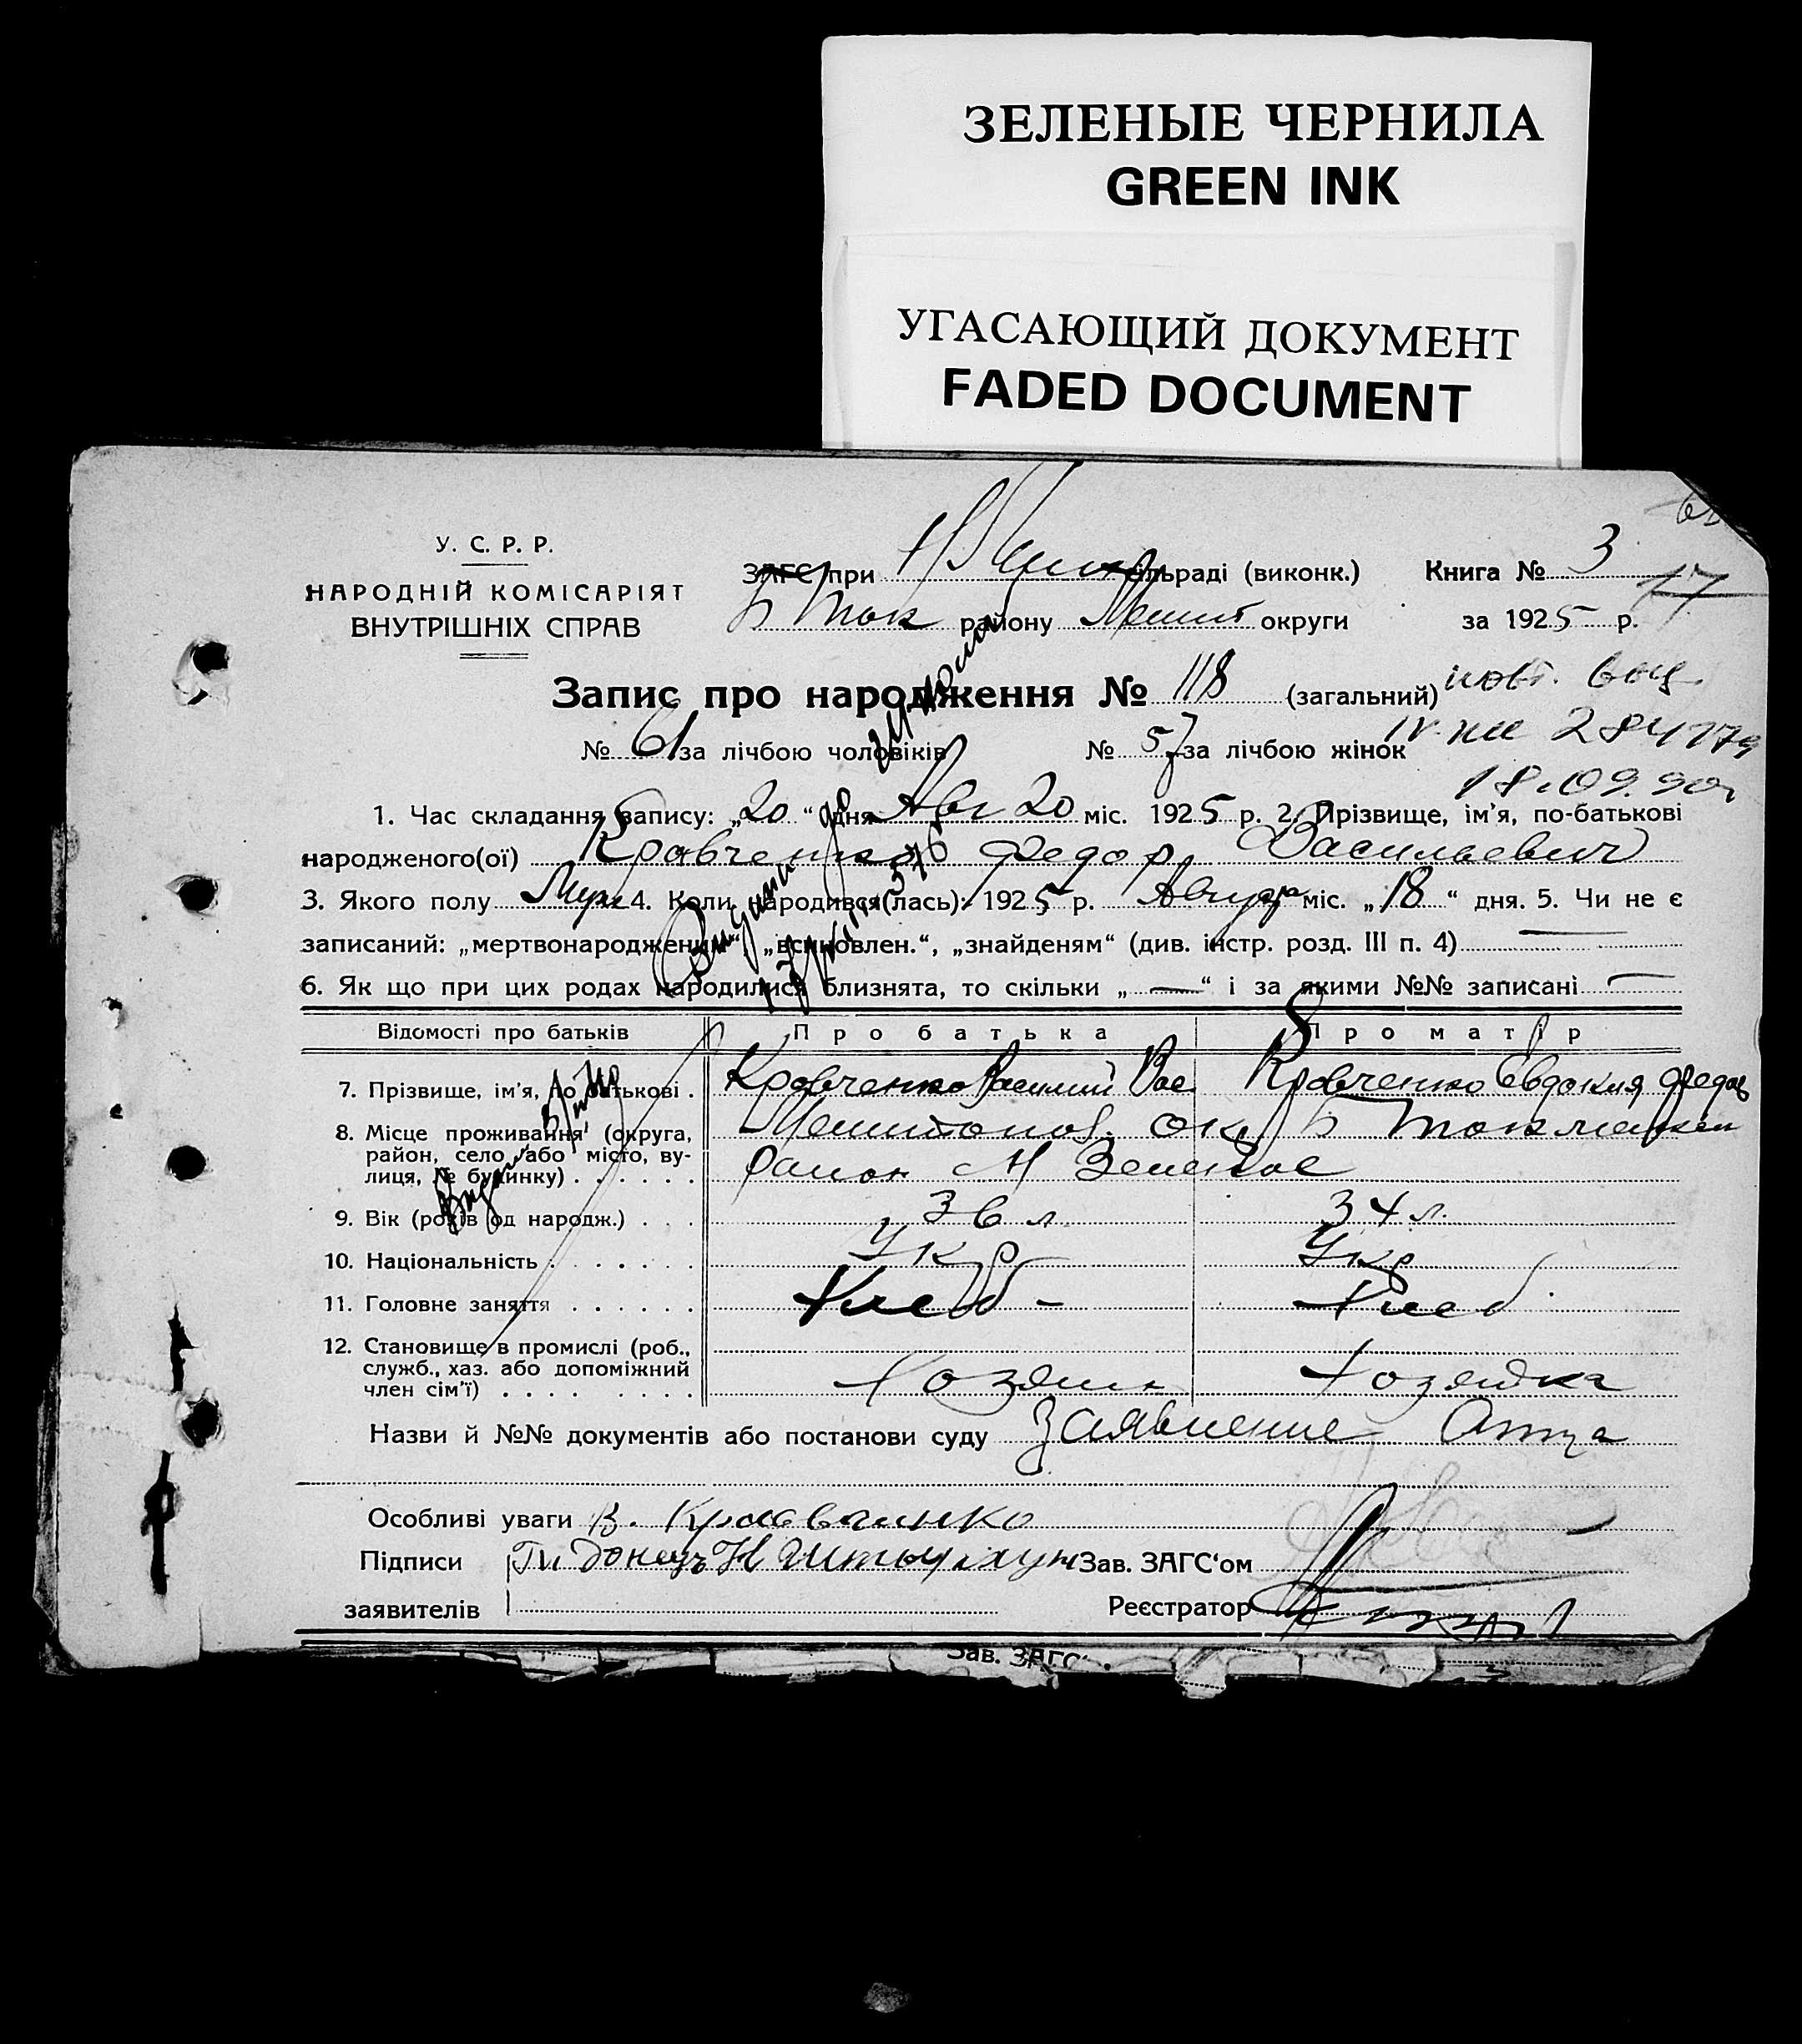 ЗЕЛЕНЫЕ ЧЕРНИЛА
GREEN INK
УГАСАЮЩИЙ ДОКУМЕНТ
FADED DOCUMENT
У. С. Р. Р.
НАРОДНІЙ КОМІСАРІЯТ
ВНУТРІШНІХ СПРАВ
ЗАГС при сільраді (виконк.) Книга № 3
17
Б Ток району Мелит округи за 1925 р.
Запис про народження № 118 (загальний) повт. выд.
№ 61 за лічбою чоловіків № 57 за лічбою жінок
284179
18.09.90г
1. Час складання запису: „20“ дня Авг 20 міс. 1925 р. 2. Прізвище, ім'я, по-батькові
народженого(ої) Кравченко Федор Васильевич
3. Якого полу Муж 4. Коли народився(лась): 1925 р. Август міс. „18“ дня. 5. Чи не є
записаний: „мертвонародженим“, „всиновлен.“, „знайденям“ (див. інстр. розд. III п. 4) —
6. Як що при цих родах народилися близнята, то скільки „—“ і за якими №№ записані —
Відомості про батьків Про батька Про матір
7. Прізвище, ім'я, по батькові . Кравченко Василий Вас Кравченко Евдокия Федор
8. Місце проживання (округа, район, село або місто, вулиця, № будинку) . . . . . . Мелитопол. ок. Б Токмакский
район
9. Вік (років од народж.) . . . 36 л. 34 л.
10. Національність . . . . . . . Укр Укр
11. Головне заняття . . . . . . Хлеб - Хлеб.
12. Становище в промислі (роб.,
служб., хаз. або допоміжний
член сім'ї) . . . . . . . . . Хозяин Хозяйка
Назви й №№ документів або постанови суду Заявление Отца
Особливі уваги В. Кравчинко
Підписи Донець Зав. ЗАГС'ом
заявителів Реєстратор
Зав. ЗАГС'